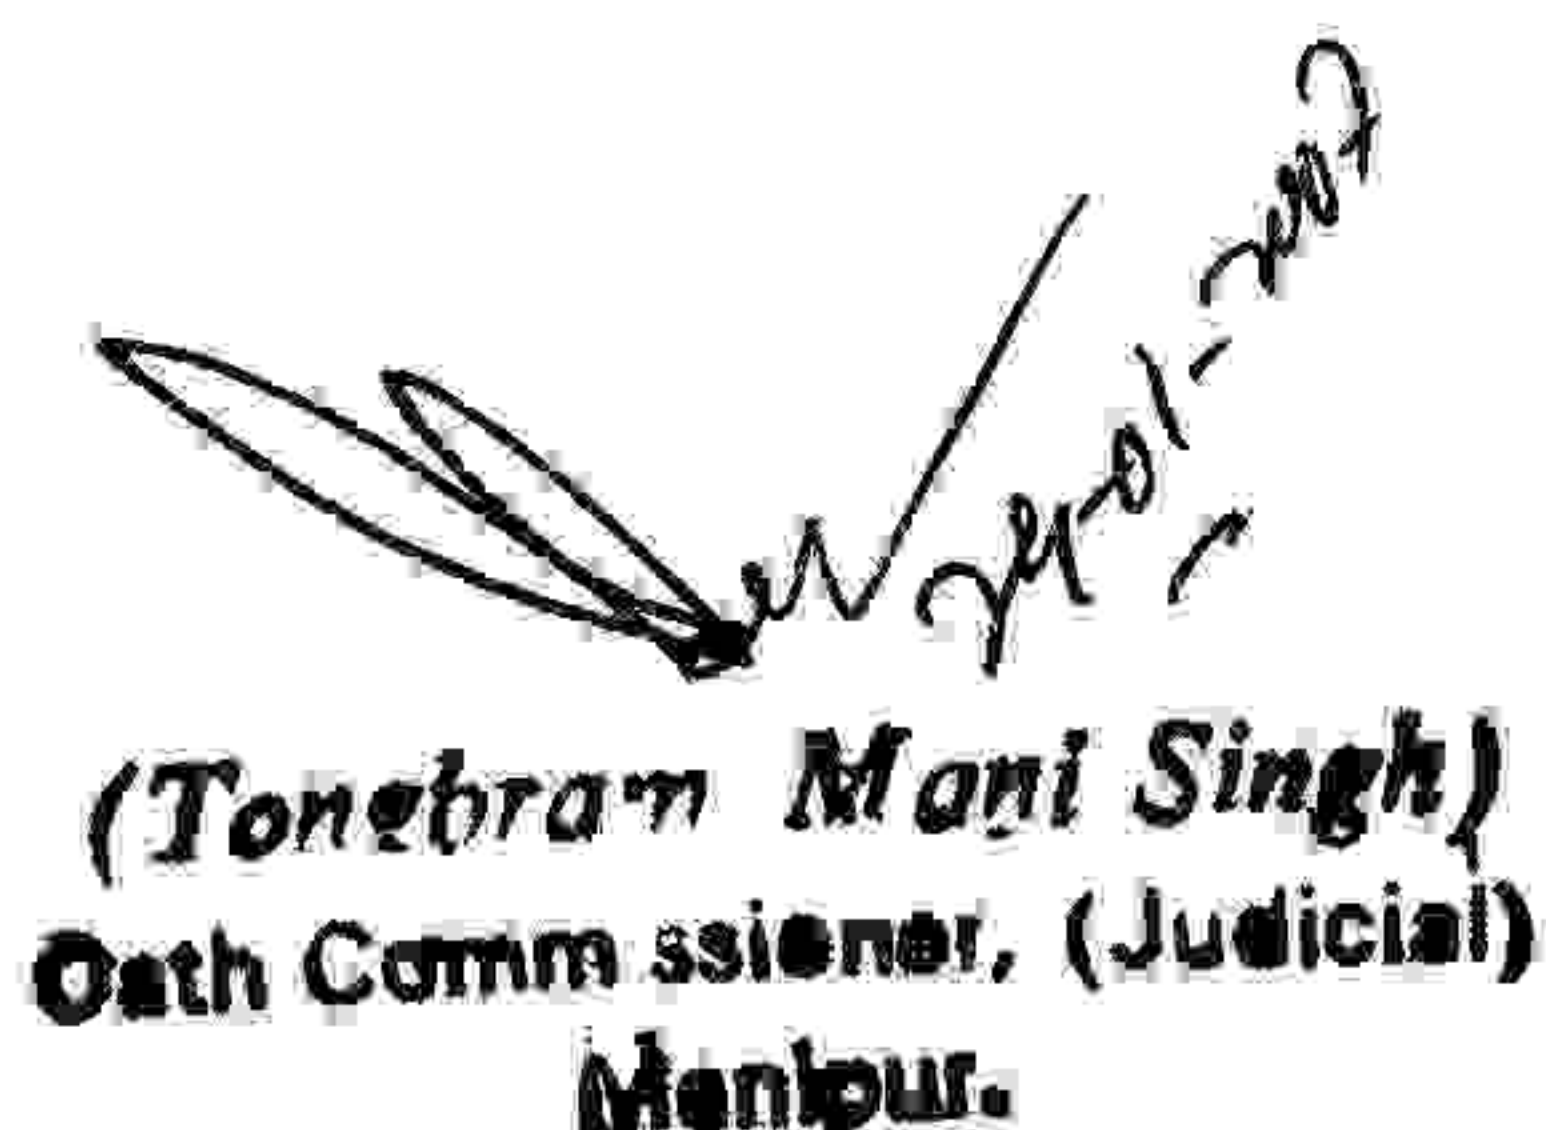 (Tongbram Mani Singh)
Oath Comm ssioner, (Judicial)
Manipur.